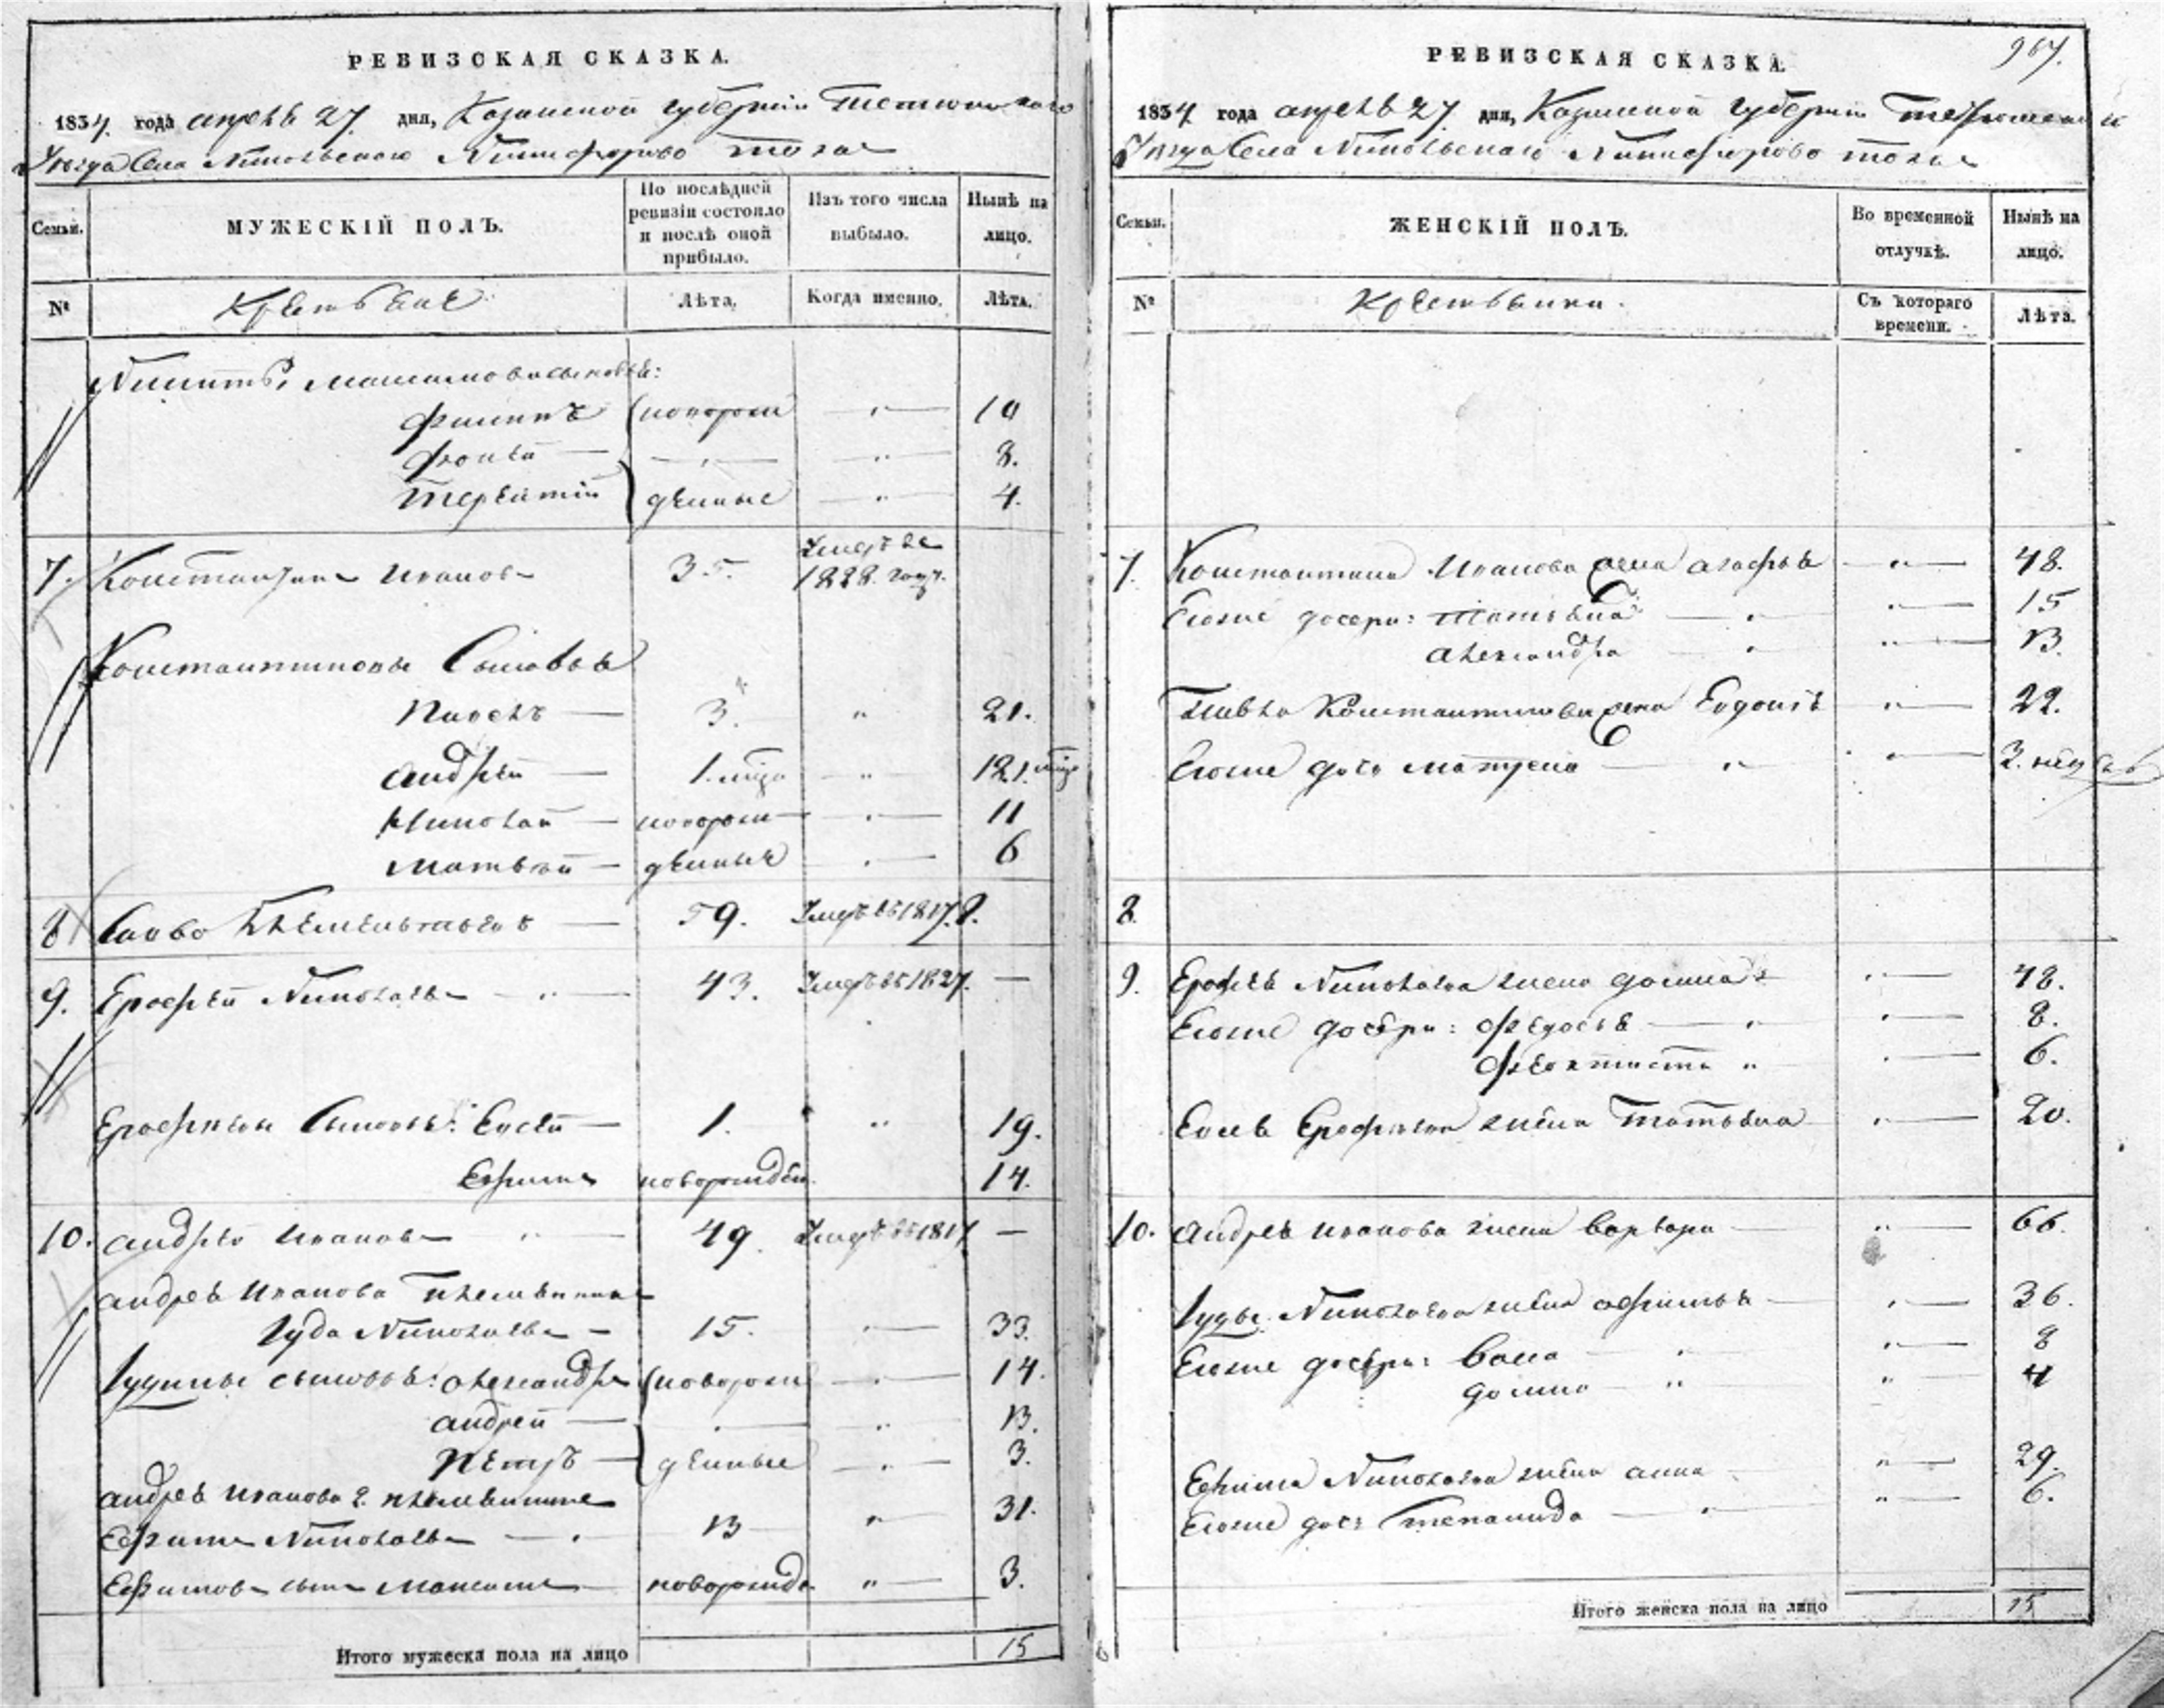 РЕВИЗСКАЯ СКАЗКА.
1834 года апреля 27 дня, Казанской губернии Тетюшскаго
Уезда Села Никольскаго Никифорово тожъ
Семьи.
МУЖЕСКІЙ ПОЛЪ.
По послѣдней ревизіи состояло и послѣ оной прибыло.
Изъ того числа выбыло.
Нынѣ на лицо.
№
Крестьяне
Лѣта,
Когда именно.
Лѣта.
Никиты Максимова сыновья:
Филипъ новорож 10
Фокей 8.
Терентий денные 4.
7. Константинъ Иванов 35. Умеръ въ 1828. году.
Константиновы Сыновья
Павелъ 3. 21.
Андрей 1. мца 18 1. мца
Николай новорож 11
Матвей денные 6
8 Савва Клементьевъ 59. Умеръ въ 1817. г.
9. Ерофей Николаевъ 43. Умеръ въ 1827. —
Ерофеевы Сыновья: Евсей 1. 19.
Ефимъ новорожден. 14.
10. Андрей Ивановъ 49. Умеръ въ 1817 —
Андрея Иванова племянникъ
Іуда Николаевъ 15. 33.
Іудины сыновья: Александръ новорож 14.
Андрей 13.
Петръ денные 3.
Андрея Иванова 2. племянникъ
Ефимъ Николаевъ 13 31.
Ефимовъ сынъ Максимъ новорожд. 3.
Итого мужеска пола на лицо 15
РЕВИЗСКАЯ СКАЗКА.
967.
1834 года апреля 27. дня, Казанской Губернии Тетюшскаго
Уезда Села Никольскаго Никифорово тожъ
Семьи.
ЖЕНСКІЙ ПОЛЪ.
Во временной отлучкѣ.
Нынѣ на лицо.
№
Крестьянки.
Съ котораго времени.
Лѣта.
7. Константина Иванова жена Агафья 48.
Егоже дочери: Татьяна 15
Александра 13.
Павла Константинова жена Евдокия 22.
Егоже дочь Матрена 3. недель
8.
9. Ерофея Николаева жена Домна 48.
Егоже дочери: Федосья 8.
Феоктиста 6.
Евсея Ерофеева жена Татьяна 20.
10. Андрея Иванова жена Варвара 66.
Іуды Николаева жена Афимья 36.
Егоже дочери: 8
Домна 4
Ефима Николаева жена Анна 29.
Егоже дочь Степанида 6.
Итого женска пола на лицо 15